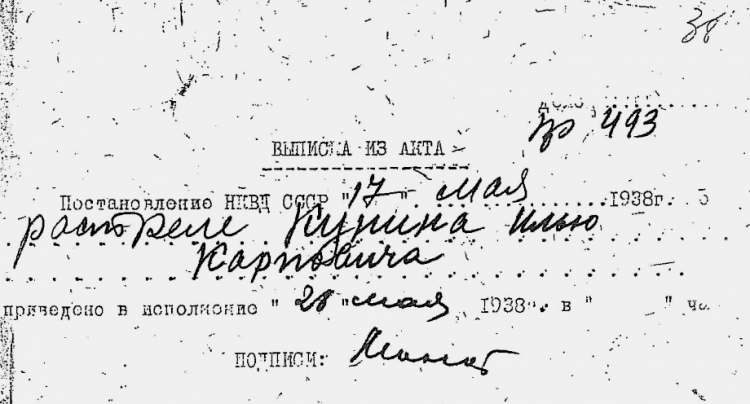 38
дело
пр 493
ВЫПИСКА ИЗ АКТА
Постановление НКВД СССР "17" мая 1938г. о
расстреле Купина Илью
Карповича
приведено в исполнение "28" мая 1938г. в " " ча
ПОДПИСИ: